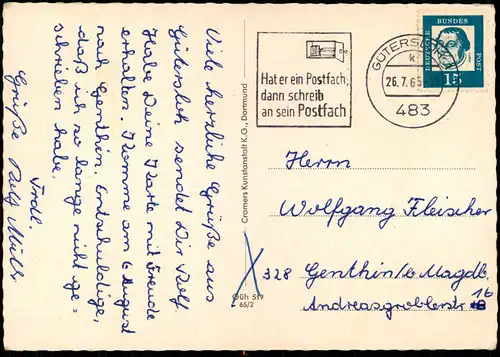 Viele herzliche Grüße aus
Gütersloh sendet Dir Rolf.
Habe Deine Karte mit Freude
erhalten. Komme am 6. August
nach Genthin. Entschuldige,
daß ich so lange nicht ge-
schrieben habe.
Frdl.
Grüße Rolf
Cramers Kunstanstalt K.G., Dortmund
Güh 519
65/2
Hat er ein Postfach,
dann schreib
an sein Postfach
GÜTERSLOH
26.7.65
483
DEUTSCHE
BUNDES
POST
15
Herrn
Wolfgang Fleischer
X 328 Genthin/b. Magdb.
16